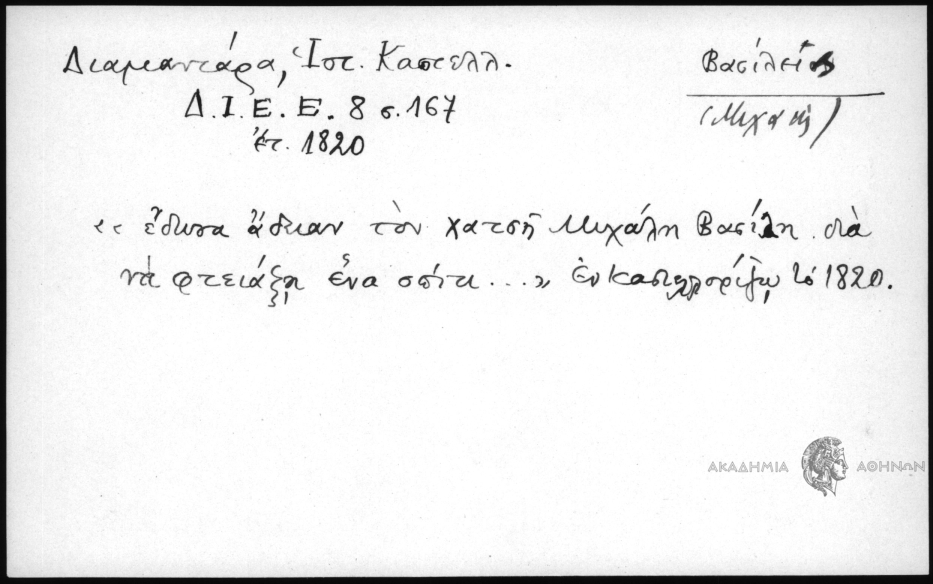 Διαμαντάρα, Ἱστ. Καστελλ.
Δ.Ι.Ε.Ε. 8 σ. 167
ἔτ. 1820
Βασίλειος
(Μιχαήλ)
« ἔδωσα ἄδειαν τὸν χατσῆ Μιχάλη Βασίλη διὰ
νὰ φτειάξῃ ἕνα σπίτι ...» ἐν Καστελλορίζῳ τὸ 1820.
ΑΚΑΔΗΜΙΑ ΑΘΗΝΩΝ